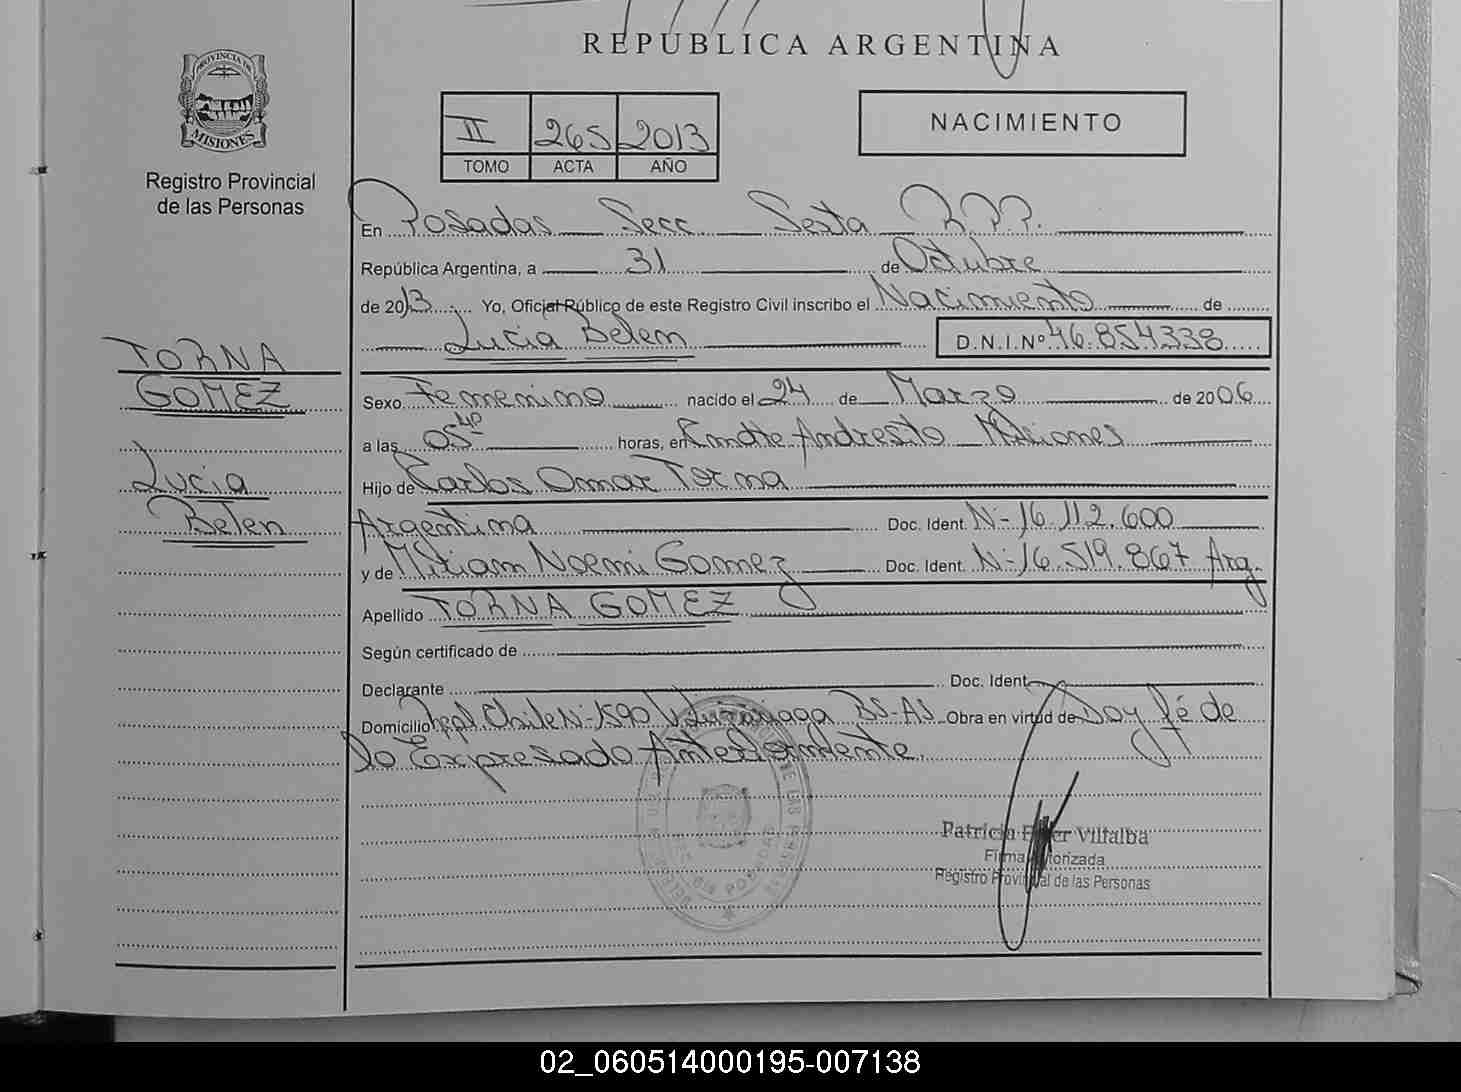 REPUBLICA ARGENTINA
PROVINCIA DE
MISIONES
Registro Provincial
de las Personas
II 265 2013
TOMO ACTA AÑO
NACIMIENTO
En Posadas Secc. Sexta R.P.P.
República Argentina, a 31 de Octubre
de 2013 Yo, Oficial Público de este Registro Civil inscribo el Nacimiento de
Lucia Belem D.N.I.Nº 46.854.338
TORNA
GOMEZ
Lucia
Belen
Sexo Femenino nacido el 24 de Marzo de 2006
a las 05 40 horas, en Cmdte Andresito Misiones
Hijo de Carlos Omar Torna
Argentina Doc. Ident. Nº 16.112.600
y de Miriam Noemi Gomez Doc. Ident. Nº 16.519.867 Arg.
Apellido TORNA GOMEZ
Según certificado de
Declarante Doc. Ident.
Domicilio Chile Nº 1590 BS-AS Obra en virtud de Doy fé de
lo Expresado Anteriormente.
Patricia Villalba
Firma Autorizada
Registro Provincial de las Personas
02_060514000195-007138